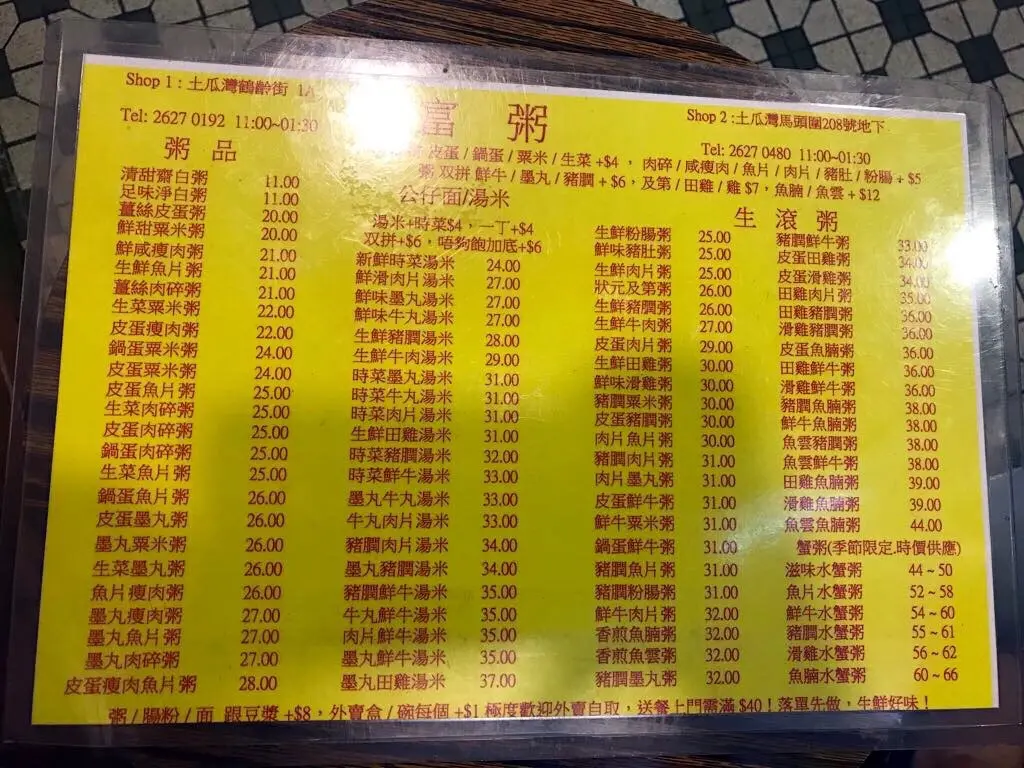 Shop 1 : 土瓜灣鶴齡街 1A
Tel: 2627 0192 11:00~01:30
富 粥
Shop 2 :土瓜灣馬頭圍208號地下
Tel: 2627 0480 11:00~01:30
皮蛋 / 鍋蛋 / 粟米 / 生菜 +$4 , 肉碎 / 咸瘦肉 / 魚片 / 肉片 / 豬肚 / 粉腸 + $5
粥 双拼 鮮牛 / 墨丸 / 豬膶 + $6,及第 / 田雞 / 雞 $7,魚腩 / 魚雲 + $12
粥 品
清甜齋白粥 11.00
足味淨白粥 11.00
薑絲皮蛋粥 20.00
鮮甜粟米粥 20.00
鮮咸瘦肉粥 21.00
生鮮魚片粥 21.00
薑絲肉碎粥 21.00
生菜粟米粥 22.00
皮蛋瘦肉粥 22.00
鍋蛋粟米粥 24.00
皮蛋粟米粥 24.00
皮蛋魚片粥 25.00
生菜肉碎粥 25.00
皮蛋肉碎粥 25.00
鍋蛋肉碎粥 25.00
生菜魚片粥 25.00
鍋蛋魚片粥 26.00
皮蛋墨丸粥 26.00
墨丸粟米粥 26.00
生菜墨丸粥 26.00
魚片瘦肉粥 26.00
墨丸瘦肉粥 27.00
墨丸魚片粥 27.00
墨丸肉碎粥 27.00
皮蛋瘦肉魚片粥 28.00
公仔面/湯米
湯米+時菜$4,一丁+$4
双拼+$6,唔夠飽加底+$6
新鮮時菜湯米 24.00
鮮滑肉片湯米 27.00
鮮味墨丸湯米 27.00
鮮味牛丸湯米 27.00
生鮮豬膶湯米 28.00
生鮮牛肉湯米 29.00
時菜墨丸湯米 31.00
時菜牛丸湯米 31.00
時菜肉片湯米 31.00
生鮮田雞湯米 31.00
時菜豬膶湯米 32.00
時菜鮮牛湯米 33.00
墨丸牛丸湯米 33.00
牛丸肉片湯米 33.00
豬膶肉片湯米 34.00
墨丸豬膶湯米 34.00
豬膶鮮牛湯米 35.00
牛丸鮮牛湯米 35.00
肉片鮮牛湯米 35.00
墨丸鮮牛湯米 35.00
墨丸田雞湯米 37.00
生 滾 粥
生鮮粉腸粥 25.00
鮮味豬肚粥 25.00
生鮮肉片粥 25.00
狀元及第粥 26.00
生鮮豬膶粥 26.00
生鮮牛肉粥 27.00
皮蛋肉片粥 29.00
生鮮田雞粥 30.00
鮮味滑雞粥 30.00
豬膶粟米粥 30.00
皮蛋豬膶粥 30.00
肉片魚片粥 30.00
豬膶肉片粥 31.00
肉片墨丸粥 31.00
皮蛋鮮牛粥 31.00
鮮牛粟米粥 31.00
鍋蛋鮮牛粥 31.00
豬膶魚片粥 31.00
豬膶粉腸粥 31.00
鮮牛肉片粥 32.00
香煎魚腩粥 32.00
香煎魚雲粥 32.00
豬膶墨丸粥 32.00
豬膶鮮牛粥 33.00
皮蛋田雞粥 34.00
皮蛋滑雞粥 34.00
田雞肉片粥 35.00
田雞豬膶粥 36.00
滑雞豬膶粥 36.00
皮蛋魚腩粥 36.00
田雞鮮牛粥 36.00
滑雞鮮牛粥 36.00
豬膶魚腩粥 38.00
鮮牛魚腩粥 38.00
魚雲豬膶粥 38.00
魚雲鮮牛粥 38.00
田雞魚腩粥 39.00
滑雞魚腩粥 39.00
魚雲魚腩粥 44.00
蟹粥(季節限定.時價供應)
滋味水蟹粥 44 ~ 50
魚片水蟹粥 52 ~ 58
鮮牛水蟹粥 54 ~ 60
豬膶水蟹粥 55 ~ 61
滑雞水蟹粥 56 ~ 62
魚腩水蟹粥 60 ~ 66
粥 / 腸粉 / 面 跟豆漿 +$8,外賣盒 / 碗每個 +$1 極度歡迎外賣自取,送餐上門需滿 $40!落單先做,生鮮好味!